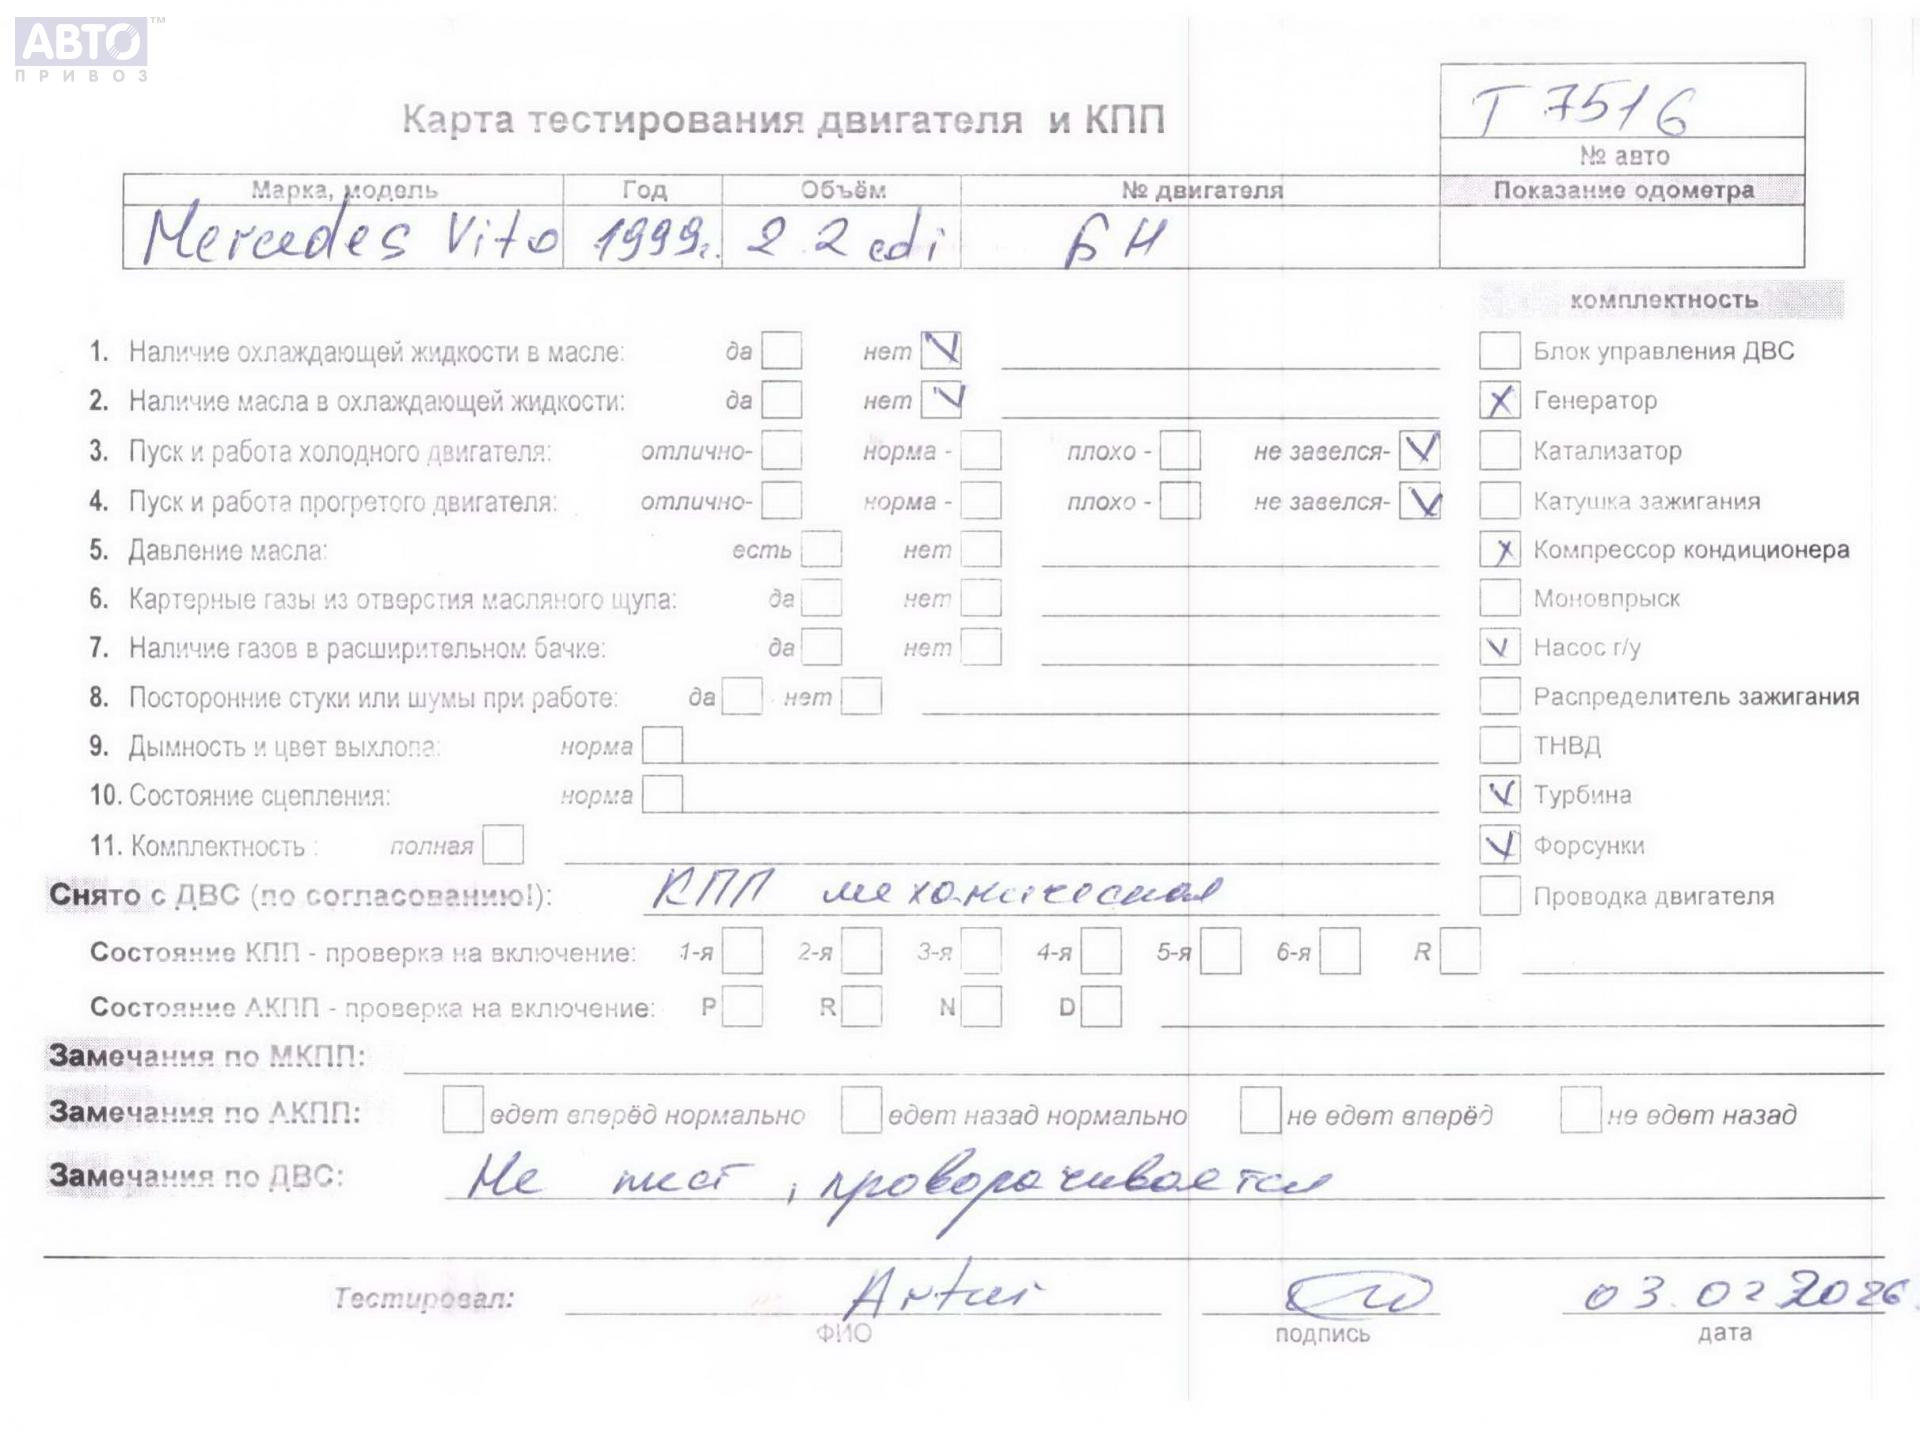 АВТО™
ПРИВОЗ
Т 7516
Карта тестирования двигателя и КПП
№ авто
Марка, модель Год Объём № двигателя Показание одометра
Mercedes Vito 1999г. 2.2 cdi БН
комплектность
1. Наличие охлаждающей жидкости в масле: да нет Блок управления ДВС
2. Наличие масла в охлаждающей жидкости: да нет Генератор
3. Пуск и работа холодного двигателя: отлично- норма - плохо - не завелся- Катализатор
4. Пуск и работа прогретого двигателя: отлично- норма - плохо - не завелся- Катушка зажигания
5. Давление масла: есть нет Компрессор кондиционера
6. Картерные газы из отверстия масляного щупа: да нет Моновпрыск
7. Наличие газов в расширительном бачке: да нет Насос г/у
8. Посторонние стуки или шумы при работе: да нет Распределитель зажигания
9. Дымность и цвет выхлопа: норма ТНВД
10. Состояние сцепления: норма Турбина
11. Комплектность : полная Форсунки
Снято с ДВС (по согласованию!): КПП механическая Проводка двигателя
Состояние КПП - проверка на включение: 1-я 2-я 3-я 4-я 5-я 6-я R
Состояние АКПП - проверка на включение: P R N D
Замечания по МКПП:
Замечания по АКПП: едет вперёд нормально едет назад нормально не едет вперёд не едет назад
Замечания по ДВС: Не , проворачивается
Тестировал: Artur 03.02.2026
ФИО подпись дата